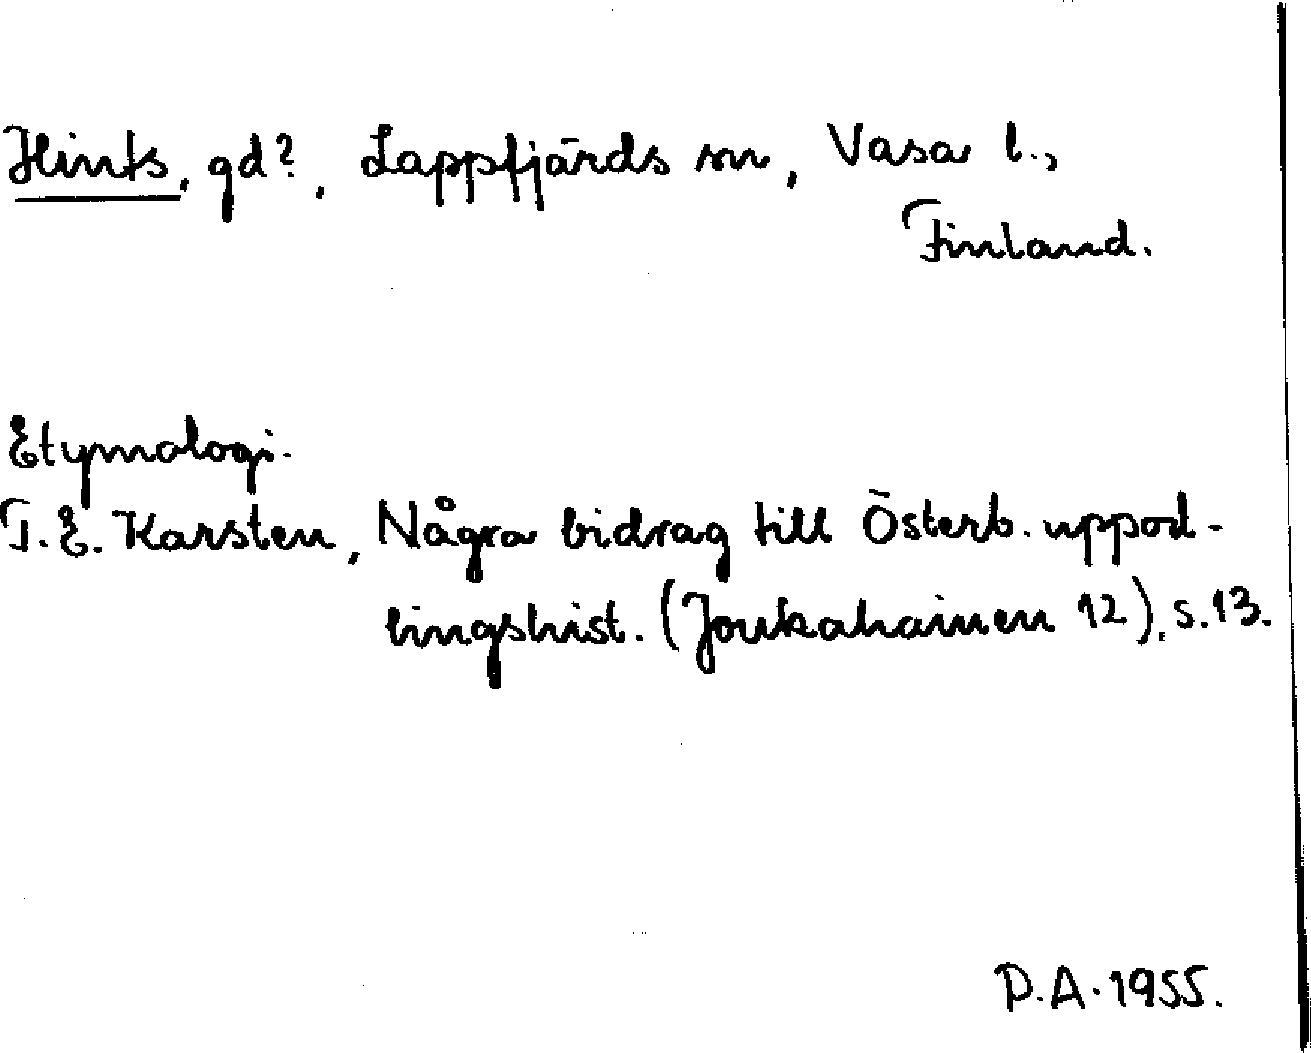 Hints, gd?, Lappfjärds sn, Vasa l.,
Finland.
Etymologi.
T.E. Karsten, Några bidrag till Österb. uppod-
lingshist. (Joukahainen 12), s. 13.
P.A. 1955.